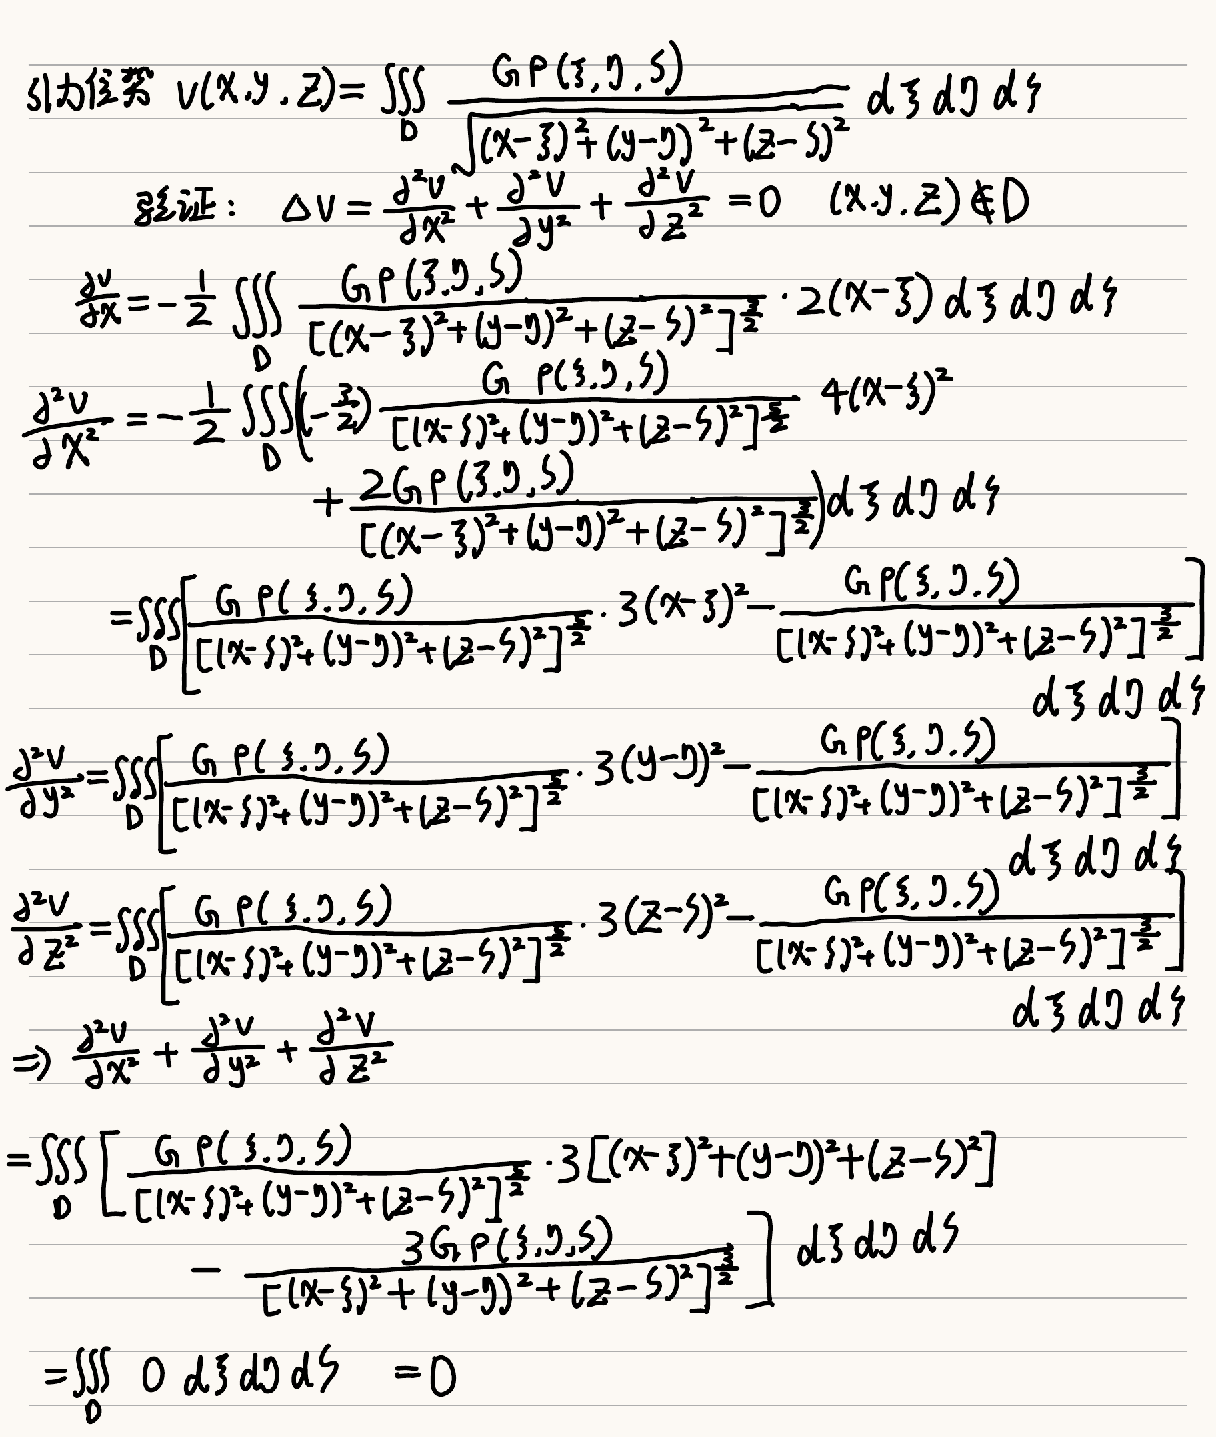 引力位势 V(x,y,z)=∭_D Gρ(ξ,η,ζ)/√((x-ξ)²+(y-η)²+(z-ζ)²) dξdηdζ
验证: ΔV=∂²V/∂x²+∂²V/∂y²+∂²V/∂z²=0 (x.y.z)∉D
∂V/∂x=-1/2 ∭_D Gρ(ξ,η,ζ)/[(x-ξ)²+(y-η)²+(z-ζ)²]^(3/2) ·2(x-ξ)dξdηdζ
∂²V/∂x²=-1/2 ∭_D((-3/2) Gρ(ξ,η,ζ)/[(x-ξ)²+(y-η)²+(z-ζ)²]^(5/2) 4(x-ξ)²
+ 2Gρ(ξ,η,ζ)/[(x-ξ)²+(y-η)²+(z-ζ)²]^(3/2))dξdηdζ
=∭_D[Gρ(ξ,η,ζ)/[(x-ξ)²+(y-η)²+(z-ζ)²]^(5/2) ·3(x-ξ)²- Gρ(ξ,η,ζ)/[(x-ξ)²+(y-η)²+(z-ζ)²]^(3/2)]
dξdηdζ
∂²V/∂y²=∭_D[Gρ(ξ,η,ζ)/[(x-ξ)²+(y-η)²+(z-ζ)²]^(5/2) ·3(y-η)²- Gρ(ξ,η,ζ)/[(x-ξ)²+(y-η)²+(z-ζ)²]^(3/2)]
dξdηdζ
∂²V/∂z²=∭_D[Gρ(ξ,η,ζ)/[(x-ξ)²+(y-η)²+(z-ζ)²]^(5/2) ·3(z-ζ)²- Gρ(ξ,η,ζ)/[(x-ξ)²+(y-η)²+(z-ζ)²]^(3/2)]
dξdηdζ
⇒ ∂²V/∂x²+∂²V/∂y²+∂²V/∂z²
=∭_D[Gρ(ξ,η,ζ)/[(x-ξ)²+(y-η)²+(z-ζ)²]^(5/2) ·3[(x-ξ)²+(y-η)²+(z-ζ)²]
- 3Gρ(ξ,η,ζ)/[(x-ξ)²+(y-η)²+(z-ζ)²]^(3/2)] dξdηdζ
=∭_D 0 dξdηdζ =0